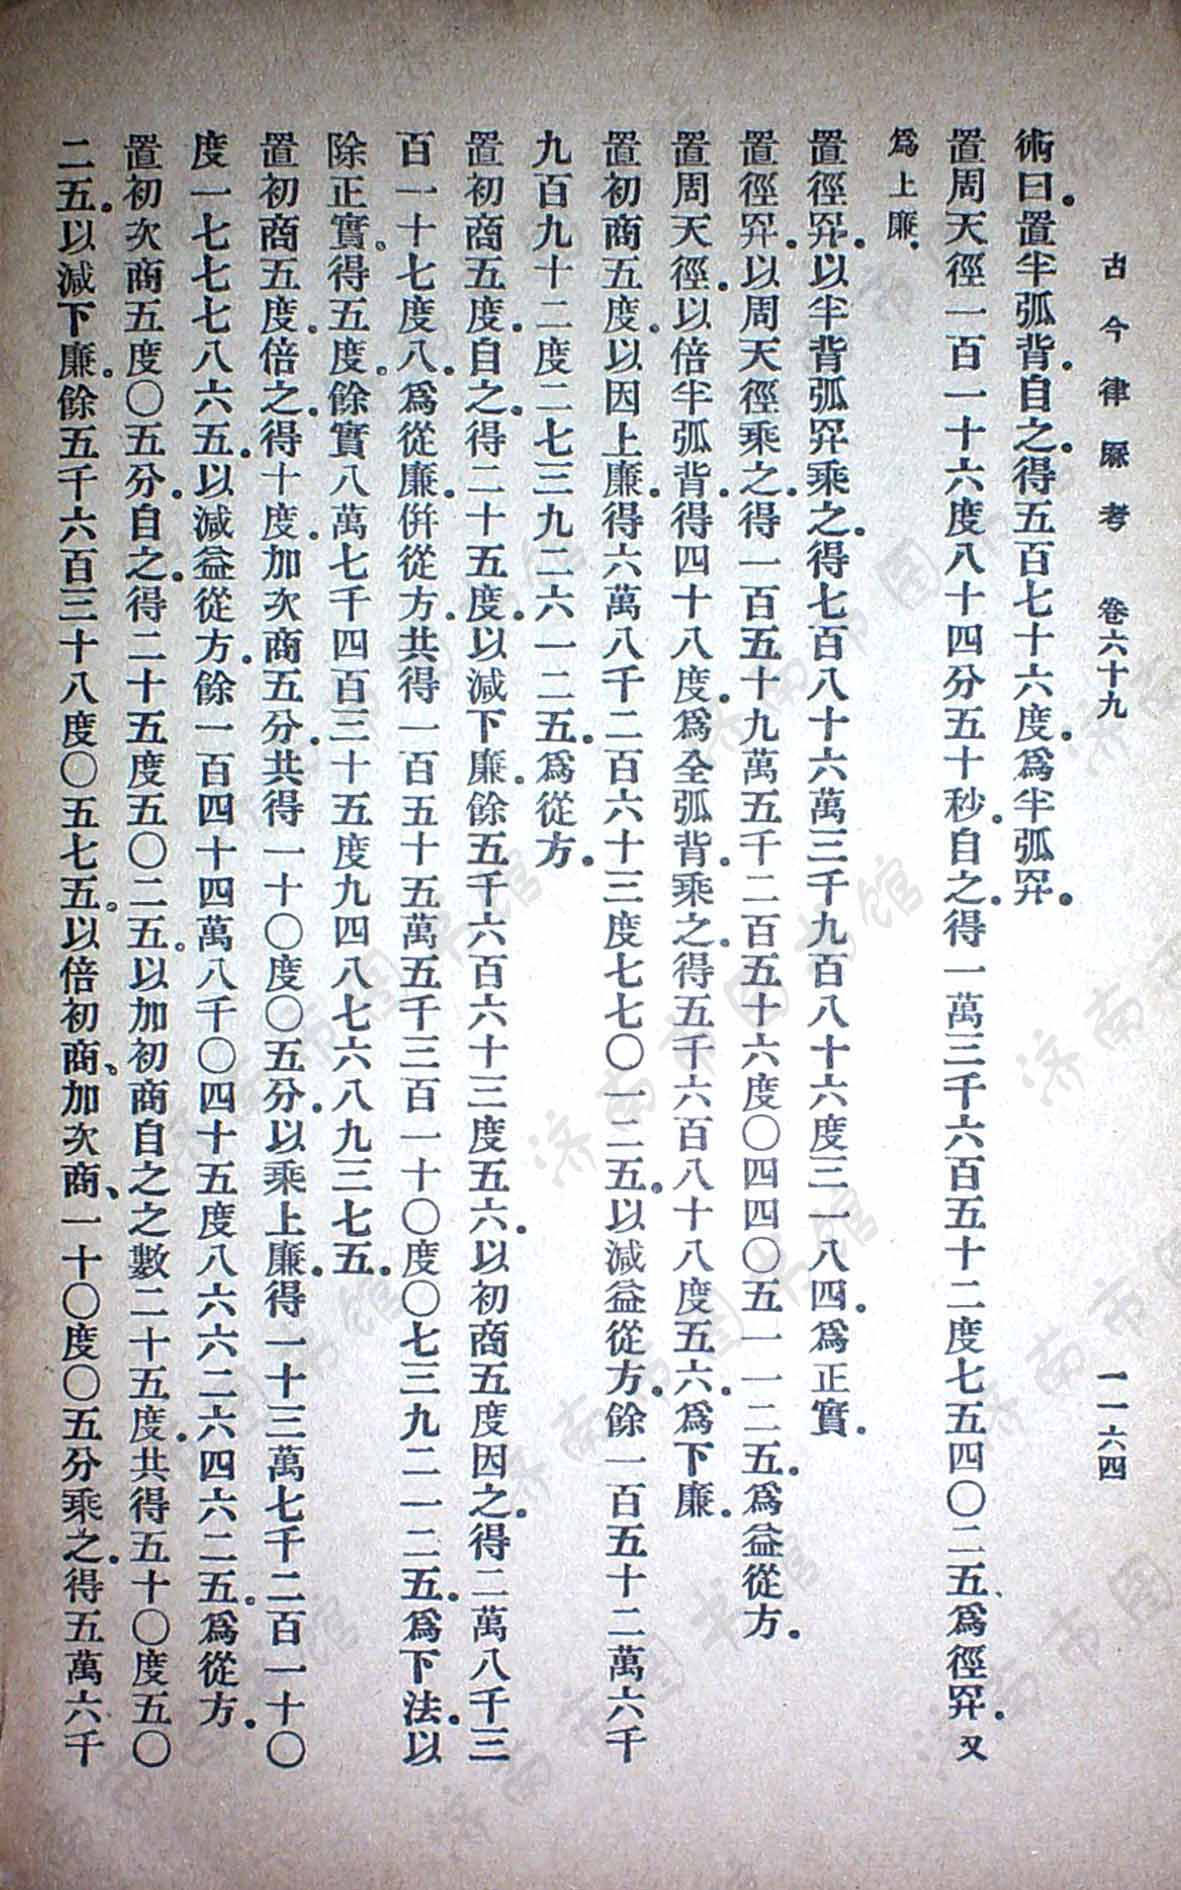 古今律厤考　卷六十九　一一六四
術曰。置半弧背。自之。得五百七十六度。爲半弧冪。
置周天徑一百一十六度八十四分五十秒。自之。得一萬三千六百五十二度七五四〇二五。爲徑冪。又
爲上廉。
置徑冪。以半背弧冪乘之。得七百八十六萬三千九百八十六度三一八四。爲正實。
置徑冪。以周天徑乘之。得一百五十九萬五千二百五十六度〇四四〇五一一二五。爲益從方。
置周天徑。以倍半弧背。得四十八度。爲全弧背。乘之。得五千六百八十八度五六。爲下廉。
置初商五度。以因上廉。得六萬八千二百六十三度七七〇一二五。以減益從方。餘一百五十二萬六千
九百九十二度二七三九二六一二五。爲從方。
置初商五度。自之。得二十五度。以減下廉。餘五千六百六十三度五六。以初商五度因之。得二萬八千三
百一十七度八。爲從廉。併從方。共得一百五十五萬五千三百一十〇度〇七三九二一二五。爲下法。以
除正實。得五度。餘實八萬七千四百三十五度九四八七六八九三七五。
置初商五度。倍之。得十度。加次商五分。共得一十〇度〇五分。以乘上廉。得一十三萬七千二百一十〇
度一七七七八六五。以減益從方。餘一百四十四萬八千〇四十五度八六六二六四六二五。爲從方。
置初次商五度〇五分。自之。得二十五度五〇二五。以加初商自之之數二十五度。共得五十〇度五〇
二五。以減下廉。餘五千六百三十八度〇五七五。以倍初商、加次商、一十〇度〇五分乘之。得五萬六千